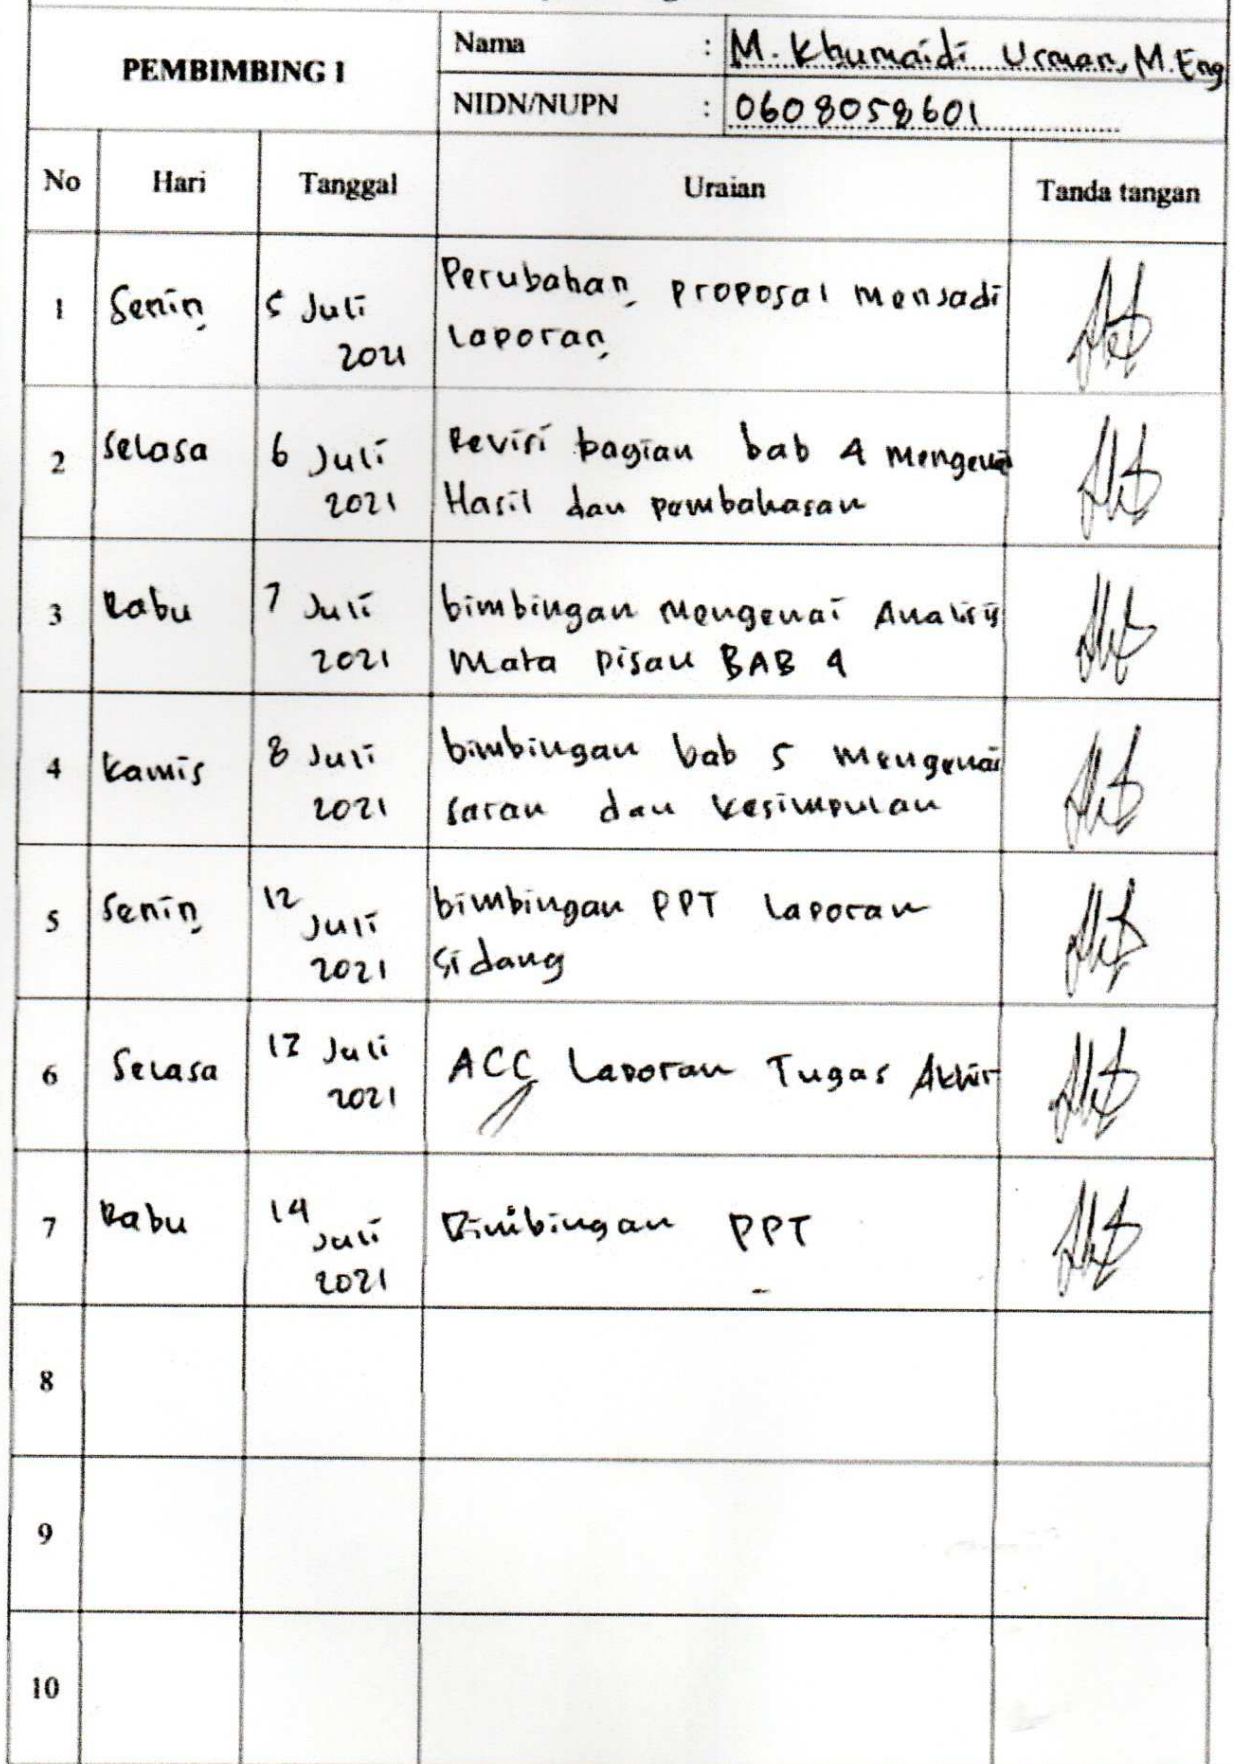 PEMBIMBING I
Nama : M. Khumaidi Usman, M.Eng
NIDN/NUPN : 0608058601
No Hari Tanggal Uraian Tanda tangan
1 Senin 5 Juli Perubahan proposal menjadi
2021 Laporan
2 Selasa 6 Juli Revisi bagian bab 4 mengenai
2021 Hasil dan pembahasan
3 Rabu 7 Juli bimbingan mengenai Analisis
2021 Mata Pisau BAB 4
4 Kamis 8 Juli bimbingan bab 5 mengenai
2021 saran dan kesimpulan
5 Senin 12 Juli bimbingan PPT Laporan
2021 Sidang
6 Selasa 13 Juli ACC Laporan Tugas Akhir
2021
7 Rabu 14 Juli Bimbingan PPT
2021
8
9
10